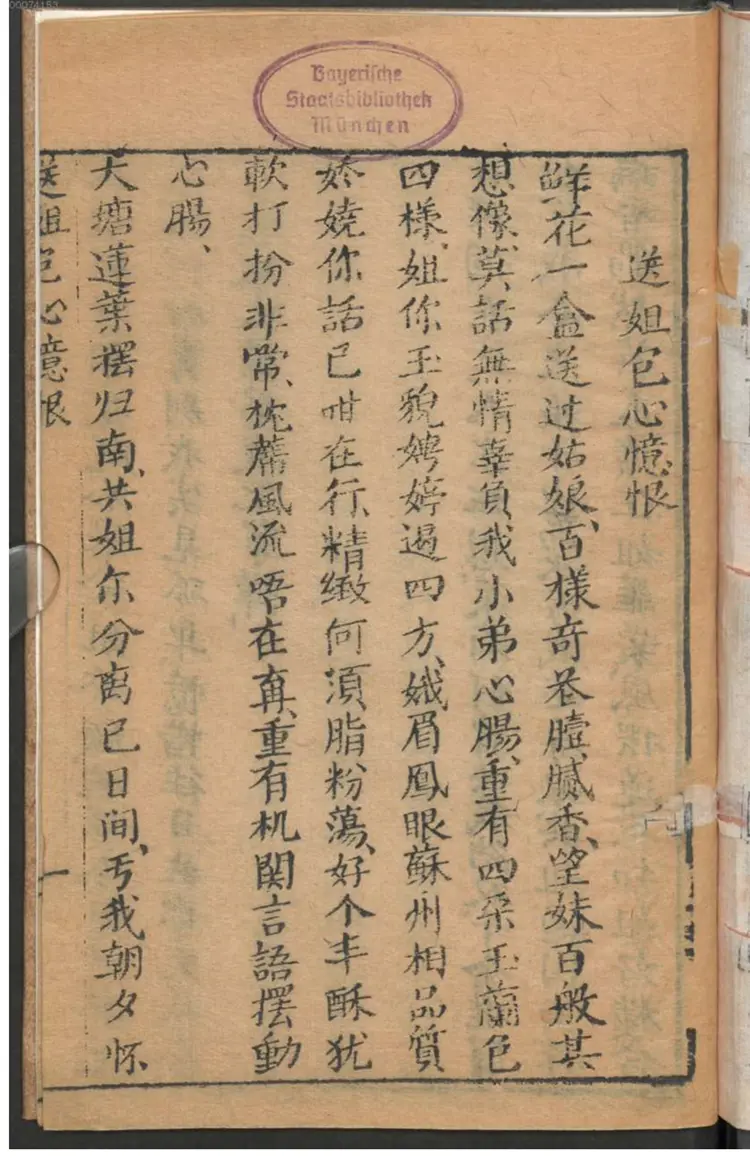 00074153
Bayerische
Staatsbibliothek
München
送姐包心憶恨
鮮花一盒送过姑娘、百樣奇花膻膩香、望妹百般其
想像、莫話無情辜負我小弟心腸、重有四朶玉蘭色
四樣、姐你玉貌娉婷過四方、娥眉鳳眼蘇州相品質
娇嬈你話已咁在行、精緻何須脂粉蕩、好个丰酥犹
軟打扮非常、枕蓆風流唔在再、重有机関言語擺動
心腸、
大塘蓮葉擺归南、共姐尔分离已日間、亏我朝夕怀
送姐包心憶恨
一